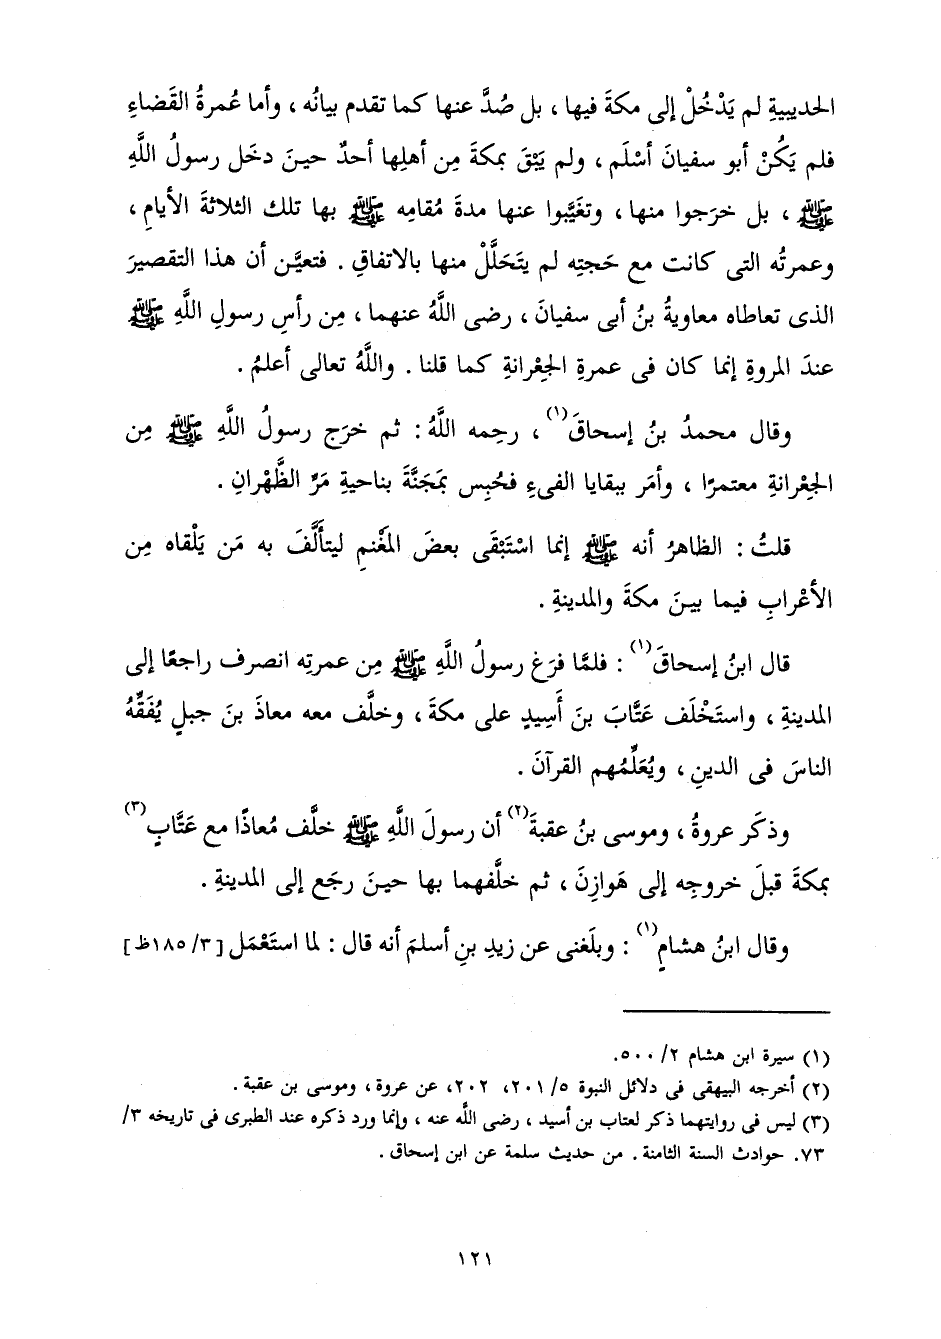 الحديبيةِ لم يَدْخُلْ إلى مكةَ فيها ، بل صُدَّ عنها كما تقدم بيانُه ، وأما عُمرةُ القَضاءِ
فلم يَكُنْ أبو سفيانَ أسْلَم ، ولم يَبْقَ بمكةَ مِن أهلِها أحدٌ حينَ دخَل رسولُ اللَّهِ
ﷺ ، بل خرَجوا منها ، وتغَيَّبوا عنها مدةَ مُقامِه ﷺ بها تلك الثلاثةَ الأيامِ ،
وعمرتُه التى كانت مع حَجتِه لم يتَحَلَّلْ منها بالاتفاقِ . فتعيَّن أن هذا التقصيرَ
الذى تعاطاه معاويةُ بنُ أبى سفيانَ ، رضى اللَّهُ عنهما ، مِن رأسِ رسولِ اللَّهِ ﷺ
عندَ المروةِ إنما كان فى عمرةِ الجِعْرانةِ كما قلنا . واللَّهُ تعالى أعلمُ .
وقال محمدُ بنُ إسحاقَ(١) ، رحِمه اللَّهُ : ثم خرَج رسولُ اللَّهِ ﷺ مِن
الجِعْرانةِ معتمرًا ، وأمَر ببقايا الفىءِ فحُبِس بمَجَنَّةَ بناحيةِ مَرِّ الظَّهْرانِ .
قلتُ : الظاهرُ أنه ﷺ إنما اسْتَبْقَى بعضَ المَغْنمِ ليتألَّفَ به مَن يَلْقاه مِن
الأعْرابِ فيما بينَ مكةَ والمدينةِ .
قال ابنُ إسحاقَ(١) : فلمَّا فرَغ رسولُ اللَّهِ ﷺ مِن عمرتِه انصرف راجعًا إلى
المدينةِ ، واستَخْلَف عَتَّابَ بنَ أَسِيدٍ على مكةَ ، وخلَّف معه معاذَ بنَ جبلٍ يُفَقِّهُ
الناسَ فى الدينِ ، ويُعَلِّمُهم القرآنَ .
وذكَر عروةُ ، وموسى بنُ عقبةَ(٢) أن رسولَ اللَّهِ ﷺ خلَّف مُعاذًا مع عَتَّابٍ(٣)
بمكةَ قبلَ خروجِه إلى هَوازِنَ ، ثم خلَّفهما بها حينَ رجَع إلى المدينةِ .
وقال ابنُ هشامٍ(١) : وبلَغنى عن زيدِ بنِ أسلمَ أنه قال : لما استَعْمَل [٣/ ١٨٥ظ]
(١) سيرة ابن هشام ٢/ ٥٠٠.
(٢) أخرجه البيهقى فى دلائل النبوة ٥/ ٢٠١، ٢٠٢، عن عروة ، وموسى بن عقبة .
(٣) ليس فى روايتهما ذكر لعتاب بن أسيد ، رضى اللَّه عنه ، وإنما ورد ذكره عند الطبرى فى تاريخه ٣/
٧٣. حوادث السنة الثامنة . من حديث سلمة عن ابن إسحاق .
١٢١